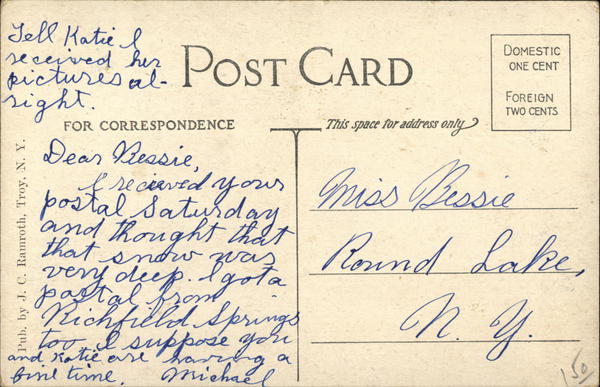 Tell Katie I
received her
pictures al-
right.
POST CARD
DOMESTIC
ONE CENT
FOREIGN
TWO CENTS
FOR CORRESPONDENCE
This space for address only
Dear Bessie,
I recieved your
postal Saturday
and thought that
that snow was
very deep. I got a
postal from
Richfield Springs
too. I suppose you
and Katie are having a
fine time. Michael
Miss Bessie
Round Lake,
N. Y.
Pub. by J. C. Ramroth, Troy, N. Y.
150/